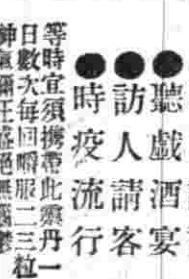 ●聽戲酒宴
●訪人請客
●時疫流行
等時宜須攜帶此丹一
日數次每回嚼服二三粒
彌王盛絕無